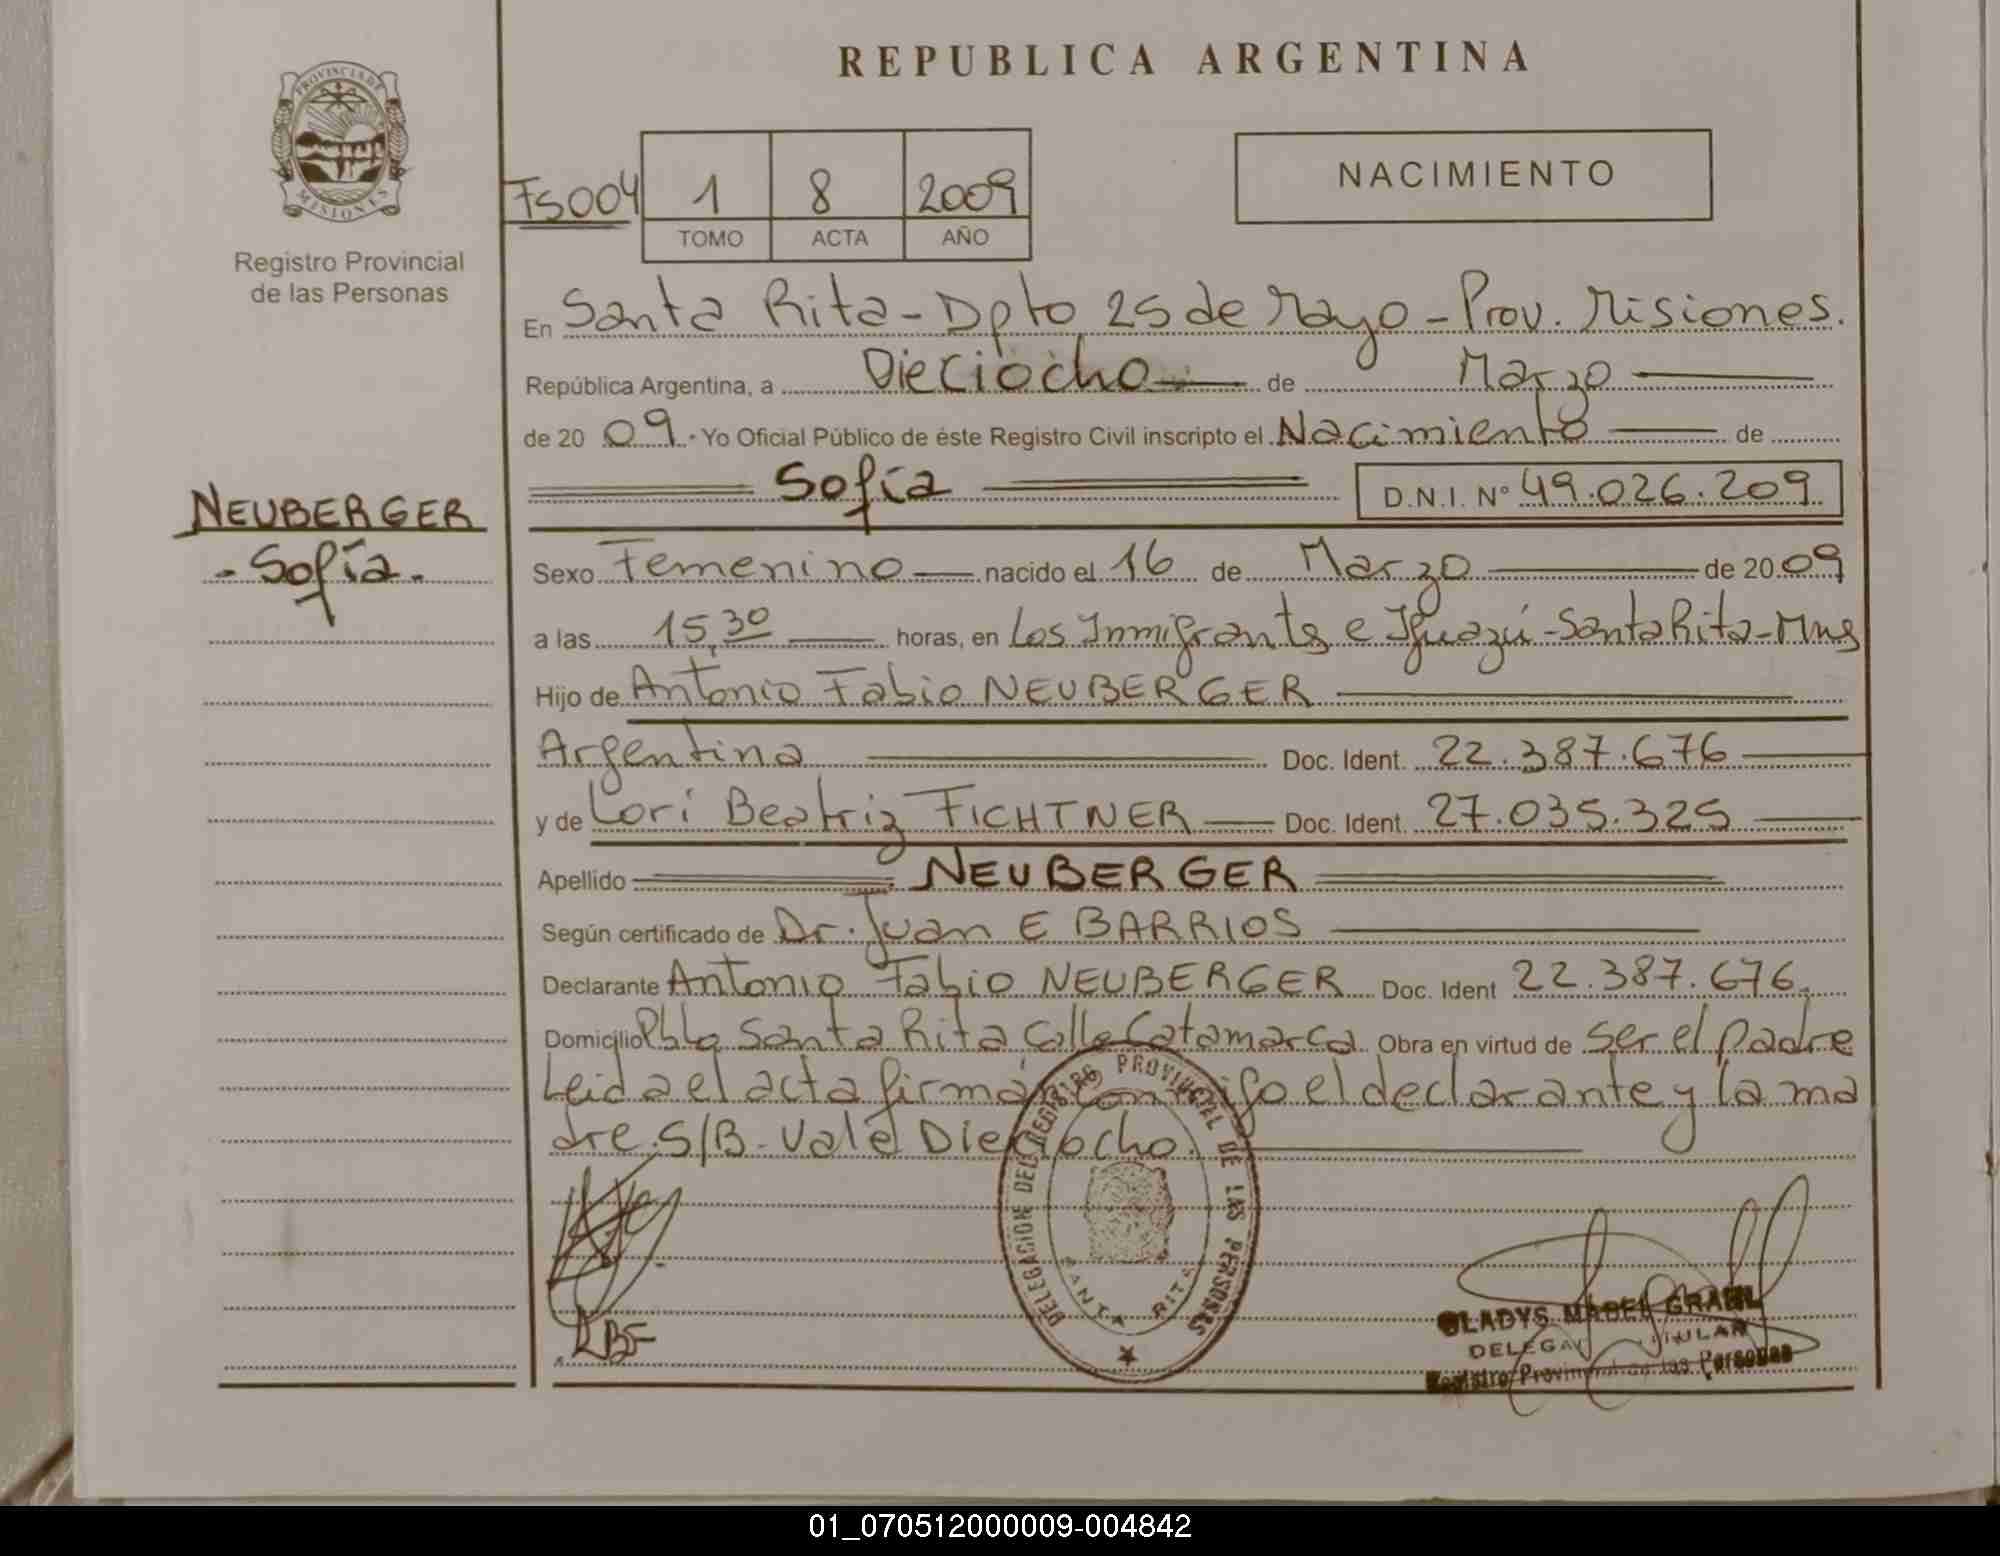 REPUBLICA ARGENTINA
PROVINCIA DE
MISIONES
Registro Provincial
de las Personas
FS004
1 8 2009
TOMO ACTA AÑO
NACIMIENTO
En Santa Rita - Dpto 25 de Mayo - Prov. Misiones.
República Argentina, a Dieciocho de Marzo
de 20 09. Yo Oficial Público de éste Registro Civil inscripto el Nacimiento de
Sofía D.N.I. Nº 49.026.209
NEUBERGER
- Sofía -
Sexo Femenino nacido el 16 de Marzo de 20 09
a las 15,30 horas, en Los Inmigrantes e Iguazú - Santa Rita - Mns
Hijo de Antonio Fabio NEUBERGER
Argentina Doc. Ident. 22.387.676
y de Lori Beatriz FICHTNER Doc. Ident. 27.035.325
Apellido NEUBERGER
Según certificado de Dr. Juan E BARRIOS
Declarante Antonio Fabio NEUBERGER Doc. Ident 22.387.676.
Domicilio Pblo Santa Rita Calle Catamarca Obra en virtud de ser el padre
Leida el acta firman conmigo el declarante y la ma
dre. S/B - Vale Dieciocho.
DELEGACION DEL REGISTRO PROVINCIAL DE LAS PERSONAS
SANTA RITA
LBF
GLADYS MABEL
DELEGADA TITULAR
Registro Provincial de las Personas
01_070512000009-004842